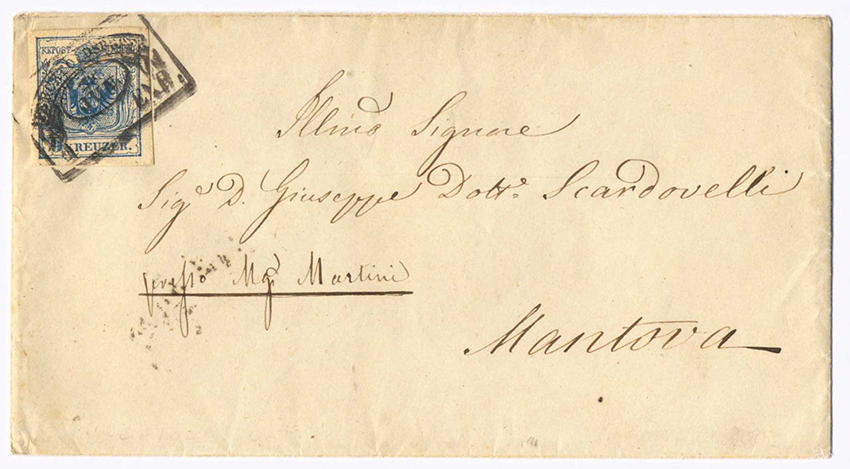 KKPOST-
9 KREUZER.
Illmo Signore
Sigr D. Giuseppe Dottr Scardovelli
presso Mgr Martini
Mantova